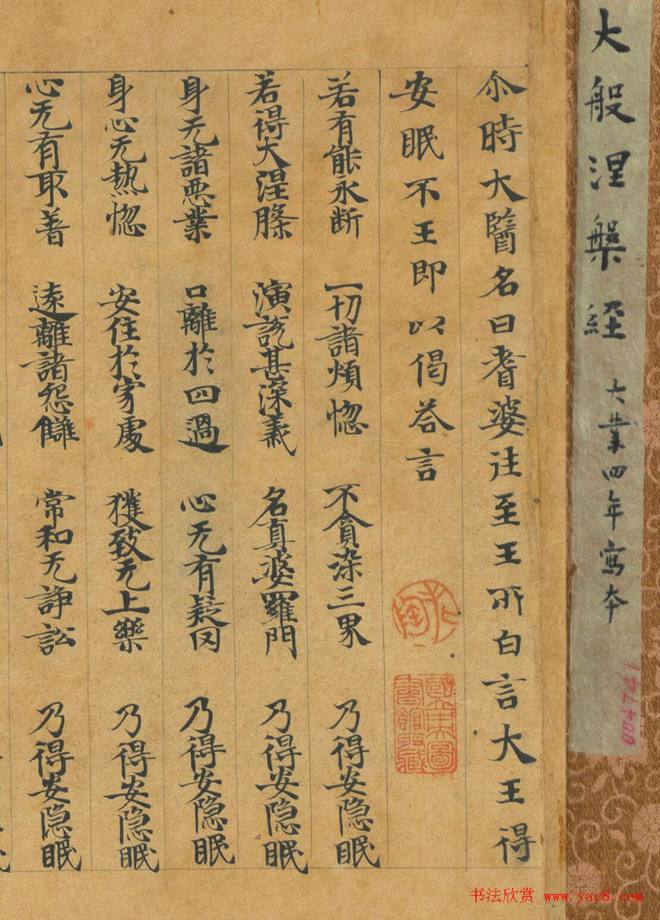 大般涅槃経 大業四年寫本
004741
尒時大醫名曰耆婆往至王所白言大王得
安眠不王即以偈荅言
若有能永断 一切諸煩惱 不貪染三界 乃得安隐眠
若得大涅槃 演說甚深義 名真婆羅門 乃得安隐眠
身无諸悪業 口離於四過 心无有疑罔 乃得安隐眠
身心无熱惱 安住於寂處 獲致无上樂 乃得安隐眠
心无有取著 遠離諸怨讎 常和无諍訟 乃得安隐眠
书法欣赏 www.yac8.com